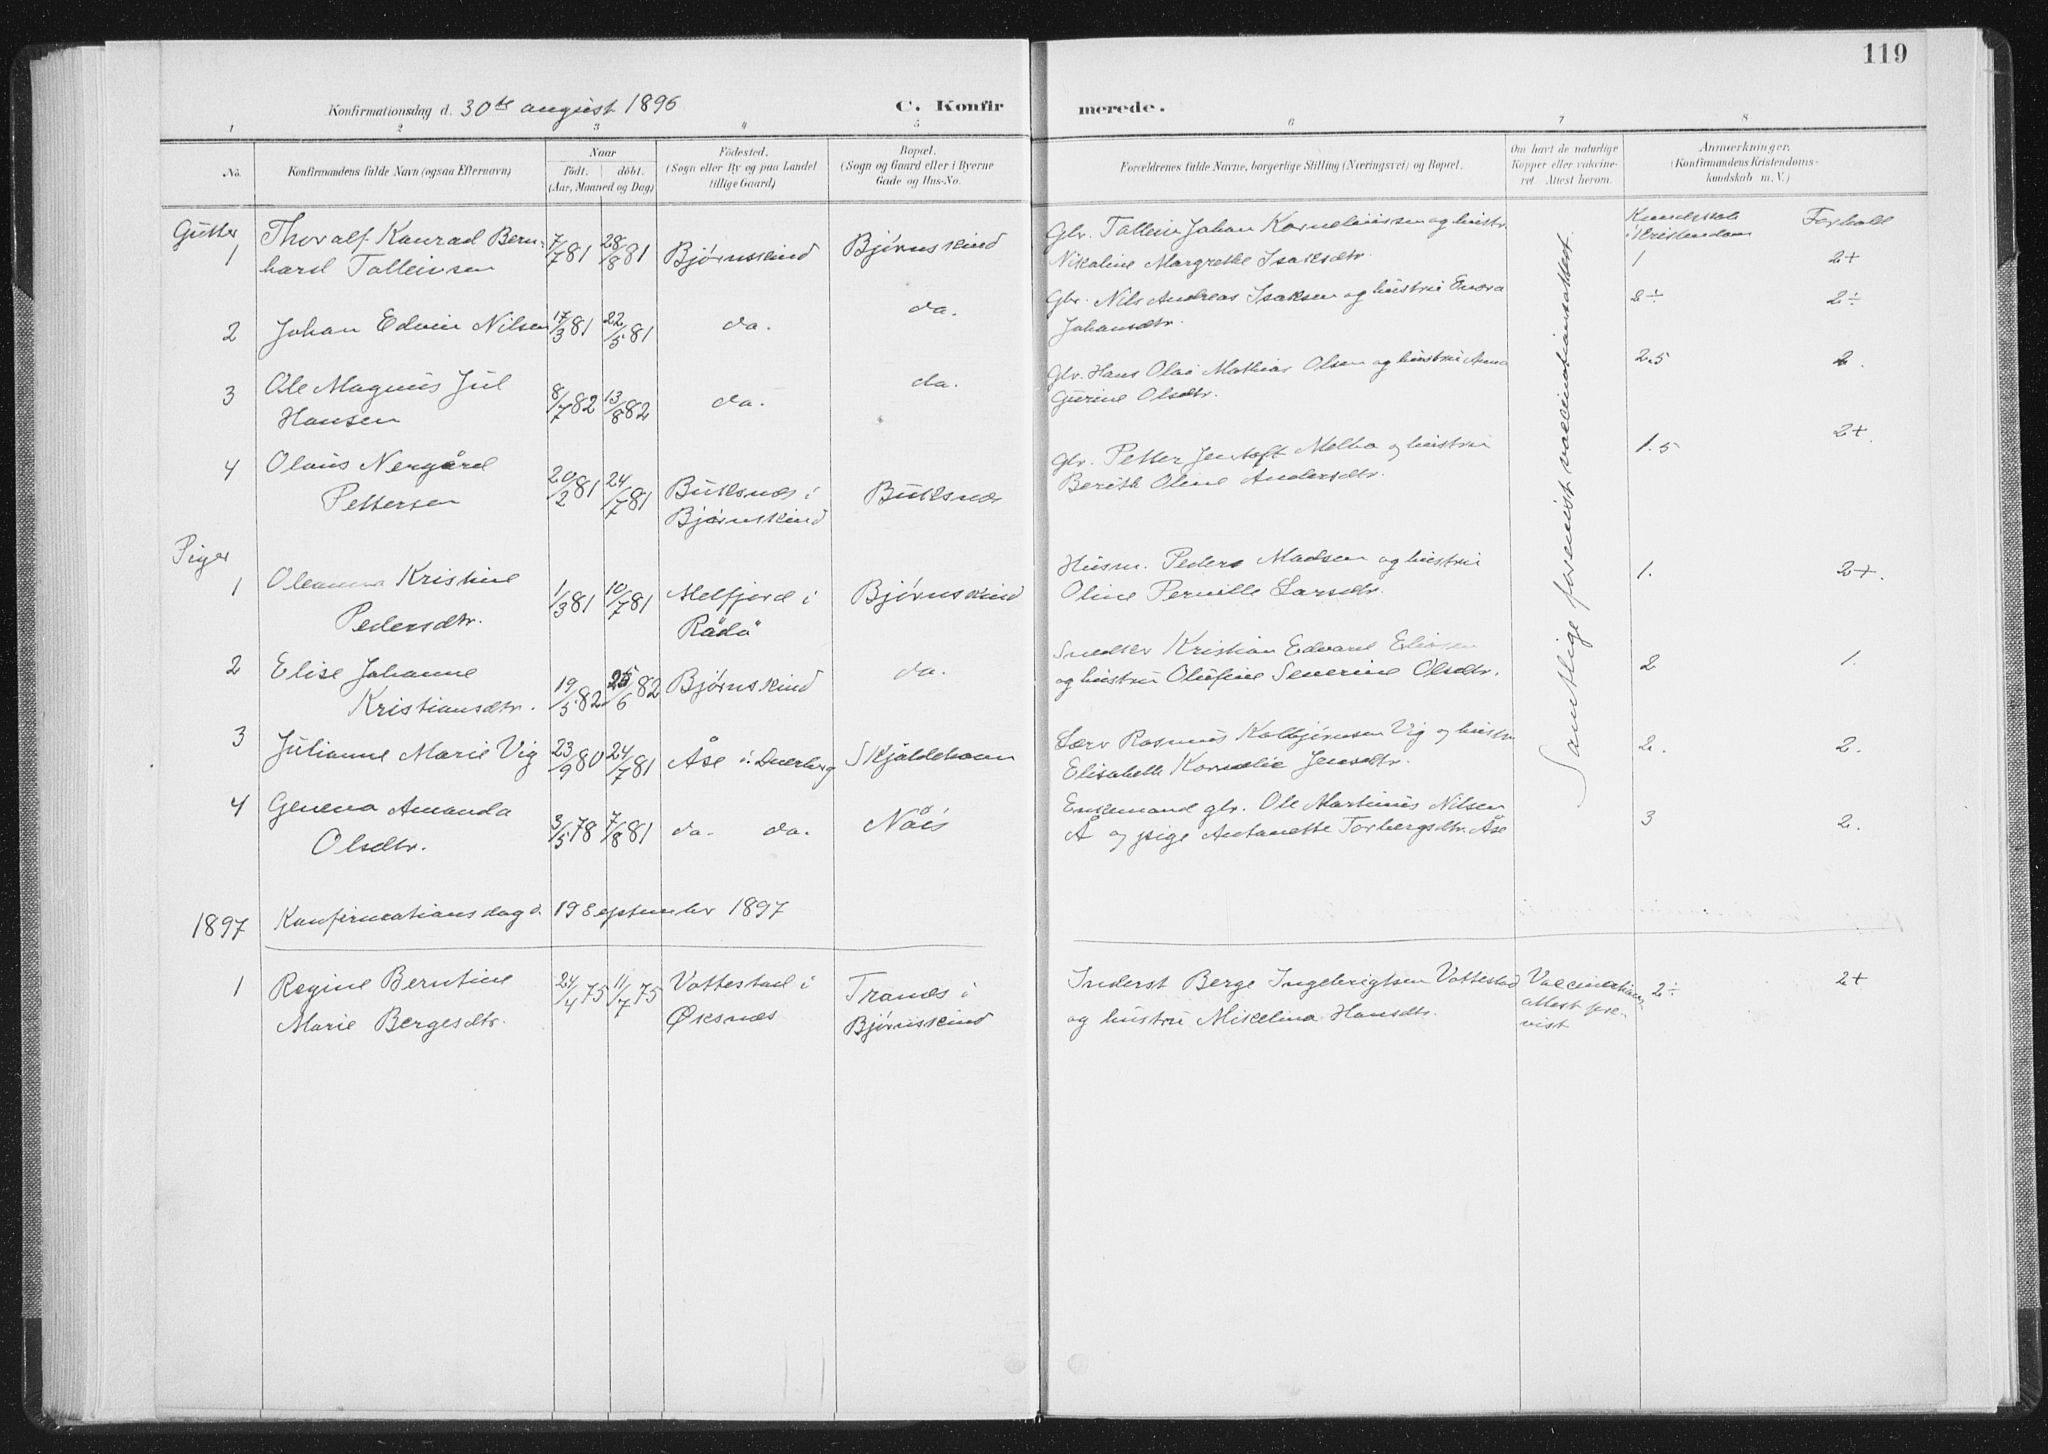 119
Konfirmationsdag d. 30te august 1896
C. Konfirmerede.
1 2 3 4 5 6 7 8
No.
Konfirmandens fulde Navn (ogsaa Efternavn)
Naar
født. døbt.
(Aar, Maaned og Dag)
Fødested.
(Sogn eller By og paa Landet
tillige Gaard)
Bopæl.
(Sogn og Gaard eller i Byerne
Gade og Hus-No.
Forældrenes fulde Navne, borgerlige Stilling (Næringsvei) og Bopæl.
Om havt de naturlige
Kopper eller vakcine-
ret. Attest herom.
Anmærkninger.
(Konfirmandens Kristendoms-
kundskab m. V.)
Kundskab i Kristendom
Forhold
Gutter
1 Thoralf Konrad Bern-
hard Tolleivsen
7/7 81 28/8 81 Bjørnskind Bjørnskind
Gbr. Tollein Johan Korneliussen og hustr.
Nikoline Margrethe Isaksdtr.
1 2+
2 Johan Edvin Nilsen 17/3 81 22/5 81 do. do.
Gbr. Nils Andreas Isaksen og hustru
Johansdtr.
2÷ 2÷
3 Ole Magnus Jul
Hansen
8/7 82 13/8 82 do. do.
Gbr. Hans Olai Mathias Olsen og hustru Anna
Gurine Olsdtr.
2.5 2.
4 Olaus Nergård
Pettersen
20/2 81 24/7 81 Buksnæs i
Bjørnskind
Buksnæs
Gbr. Petter Jentoft Molbo og hustru
Berith Oline Andersdtr.
1.5 2+.
Samtlige forevist vaccinationsattest.
Piger
1 Oleanna Kristine
Pedersdtr.
1/3 81 10/7 81 Melfjord i
Rödö
Bjørnskind
Husm. Peder Madsen og hustru
Oline Pernille Larsdtr.
1. 2+.
2 Elise Johanne
Kristiansdtr.
19/5 82 25/6 82 Bjørnskind do.
Snedker Kristian Edvard Eliasen
og hustru Olufine Severine Olsdtr.
2 1.
3 Julianne Marie Vig 23/9 80 24/7 81 Åse i Dverberg Skjoldehavn
Lærer Rasmus Kolbjørnsen Vig og hustru
Elisabeth Kornelie Jensdtr.
2. 2.
4 Genena Amanda
Olsdtr.
3/5 78 7/8 81 do. do. Nöis
Enkemand gbr. Ole Martinus Nilsen
Å og pige Antonette Torbergsdtr. Åse
3 2.
1897 Konfirmationsdag d. 19 September 1897
1 Regine Berntine
Marie Bergesdtr.
24/4 75 11/7 75 Vottestad i
Øksnæs
Tranes i
Bjørnskind
Inderst Berge Ingebrigtsen Vottestad
og hustru Mikelina Hansdtr.
Vaccinations
attest fore-
vist
2÷ 2+